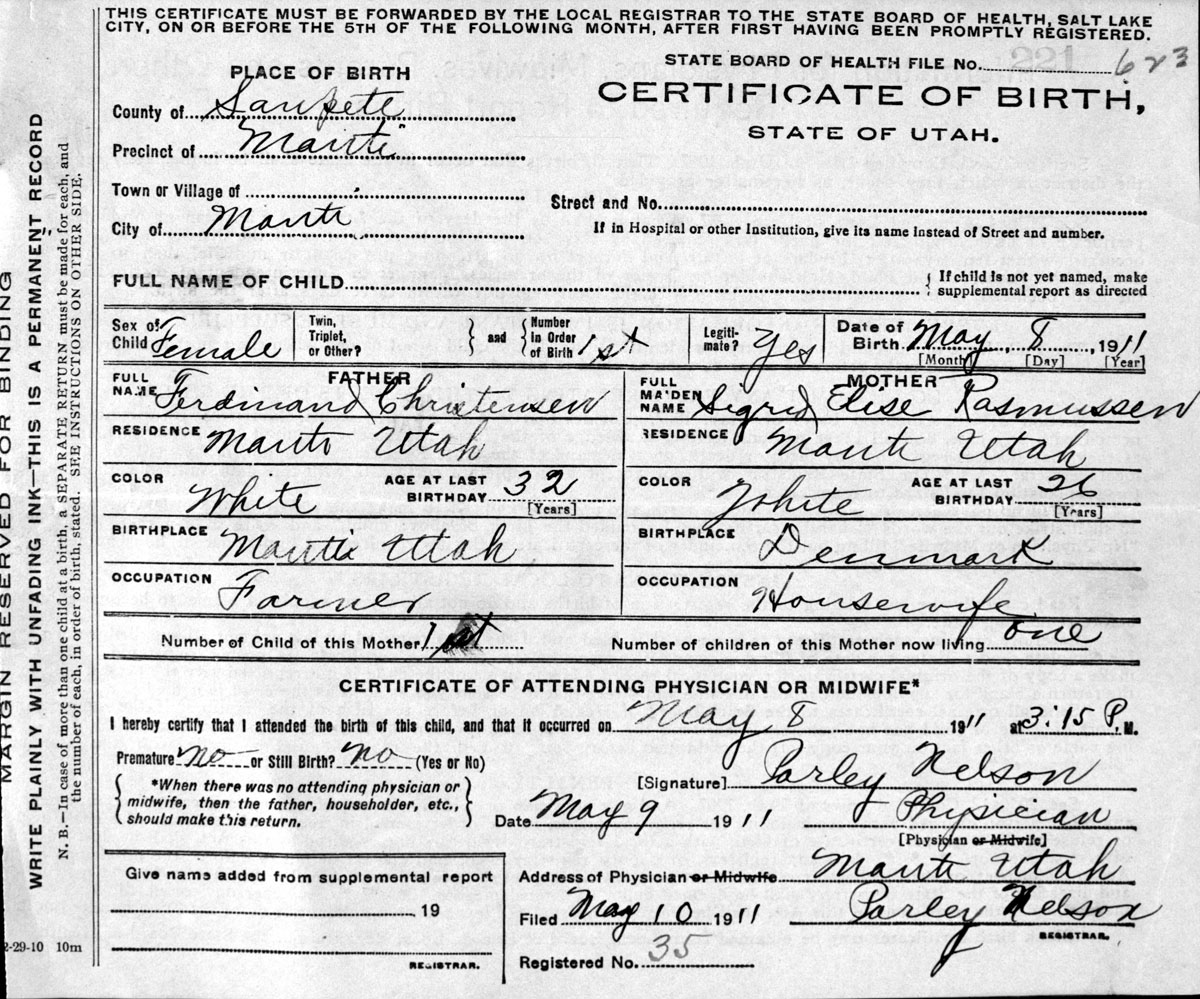 THIS CERTIFICATE MUST BE FORWARDED BY THE LOCAL REGISTRAR TO THE STATE BOARD OF HEALTH, SALT LAKE
CITY, ON OR BEFORE THE 5TH OF THE FOLLOWING MONTH, AFTER FIRST HAVING BEEN PROMPTLY REGISTERED.
STATE BOARD OF HEALTH FILE No. 623
CERTIFICATE OF BIRTH,
STATE OF UTAH.
PLACE OF BIRTH
County of Sanpete
Precinct of Manti
Town or Village of
Street and No.
City of Manti
If in Hospital or other Institution, give its name instead of Street and number.
FULL NAME OF CHILD
{ If child is not yet named, make
supplemental report as directed
Sex of Child Female
Twin, Triplet, or Other?
} and { Number in Order of Birth 1st
Legitimate? Yes
Date of Birth May 8, 1911
[Month] [Day] [Year]
FATHER
FULL NAME Ferdinand Christensen
RESIDENCE Manti Utah
COLOR White
AGE AT LAST BIRTHDAY 32
[Years]
BIRTHPLACE Manti Utah
OCCUPATION Farmer
MOTHER
FULL MAIDEN NAME Sigrid Elise Rasmussen
RESIDENCE Manti Utah
COLOR White
AGE AT LAST BIRTHDAY 26
[Years]
BIRTHPLACE Denmark
OCCUPATION Housewife
Number of Child of this Mother 1st
Number of children of this Mother now living one
CERTIFICATE OF ATTENDING PHYSICIAN OR MIDWIFE*
I hereby certify that I attended the birth of this child, and that it occurred on May 8 1911 at 3:15 P. M.
Premature no or Still Birth? no (Yes or No)
{ *When there was no attending physician or
midwife, then the father, householder, etc.,
should make this return. }
[Signature] Parley Nelson
Date May 9 1911
Physician
[Physician or Midwife]
Address of Physician or Midwife Manti Utah
Filed May 10 1911 Parley Nelson
REGISTRAR.
Registered No. 35
Give name added from supplemental report
19
REGISTRAR.
2-29-10 10m
MARGIN RESERVED FOR BINDING
WRITE PLAINLY WITH UNFADING INK—THIS IS A PERMANENT RECORD
N. B.—In case of more than one child at a birth, a SEPARATE RETURN must be made for each, and
the number of each, in order of birth, stated. SEE INSTRUCTIONS ON OTHER SIDE.